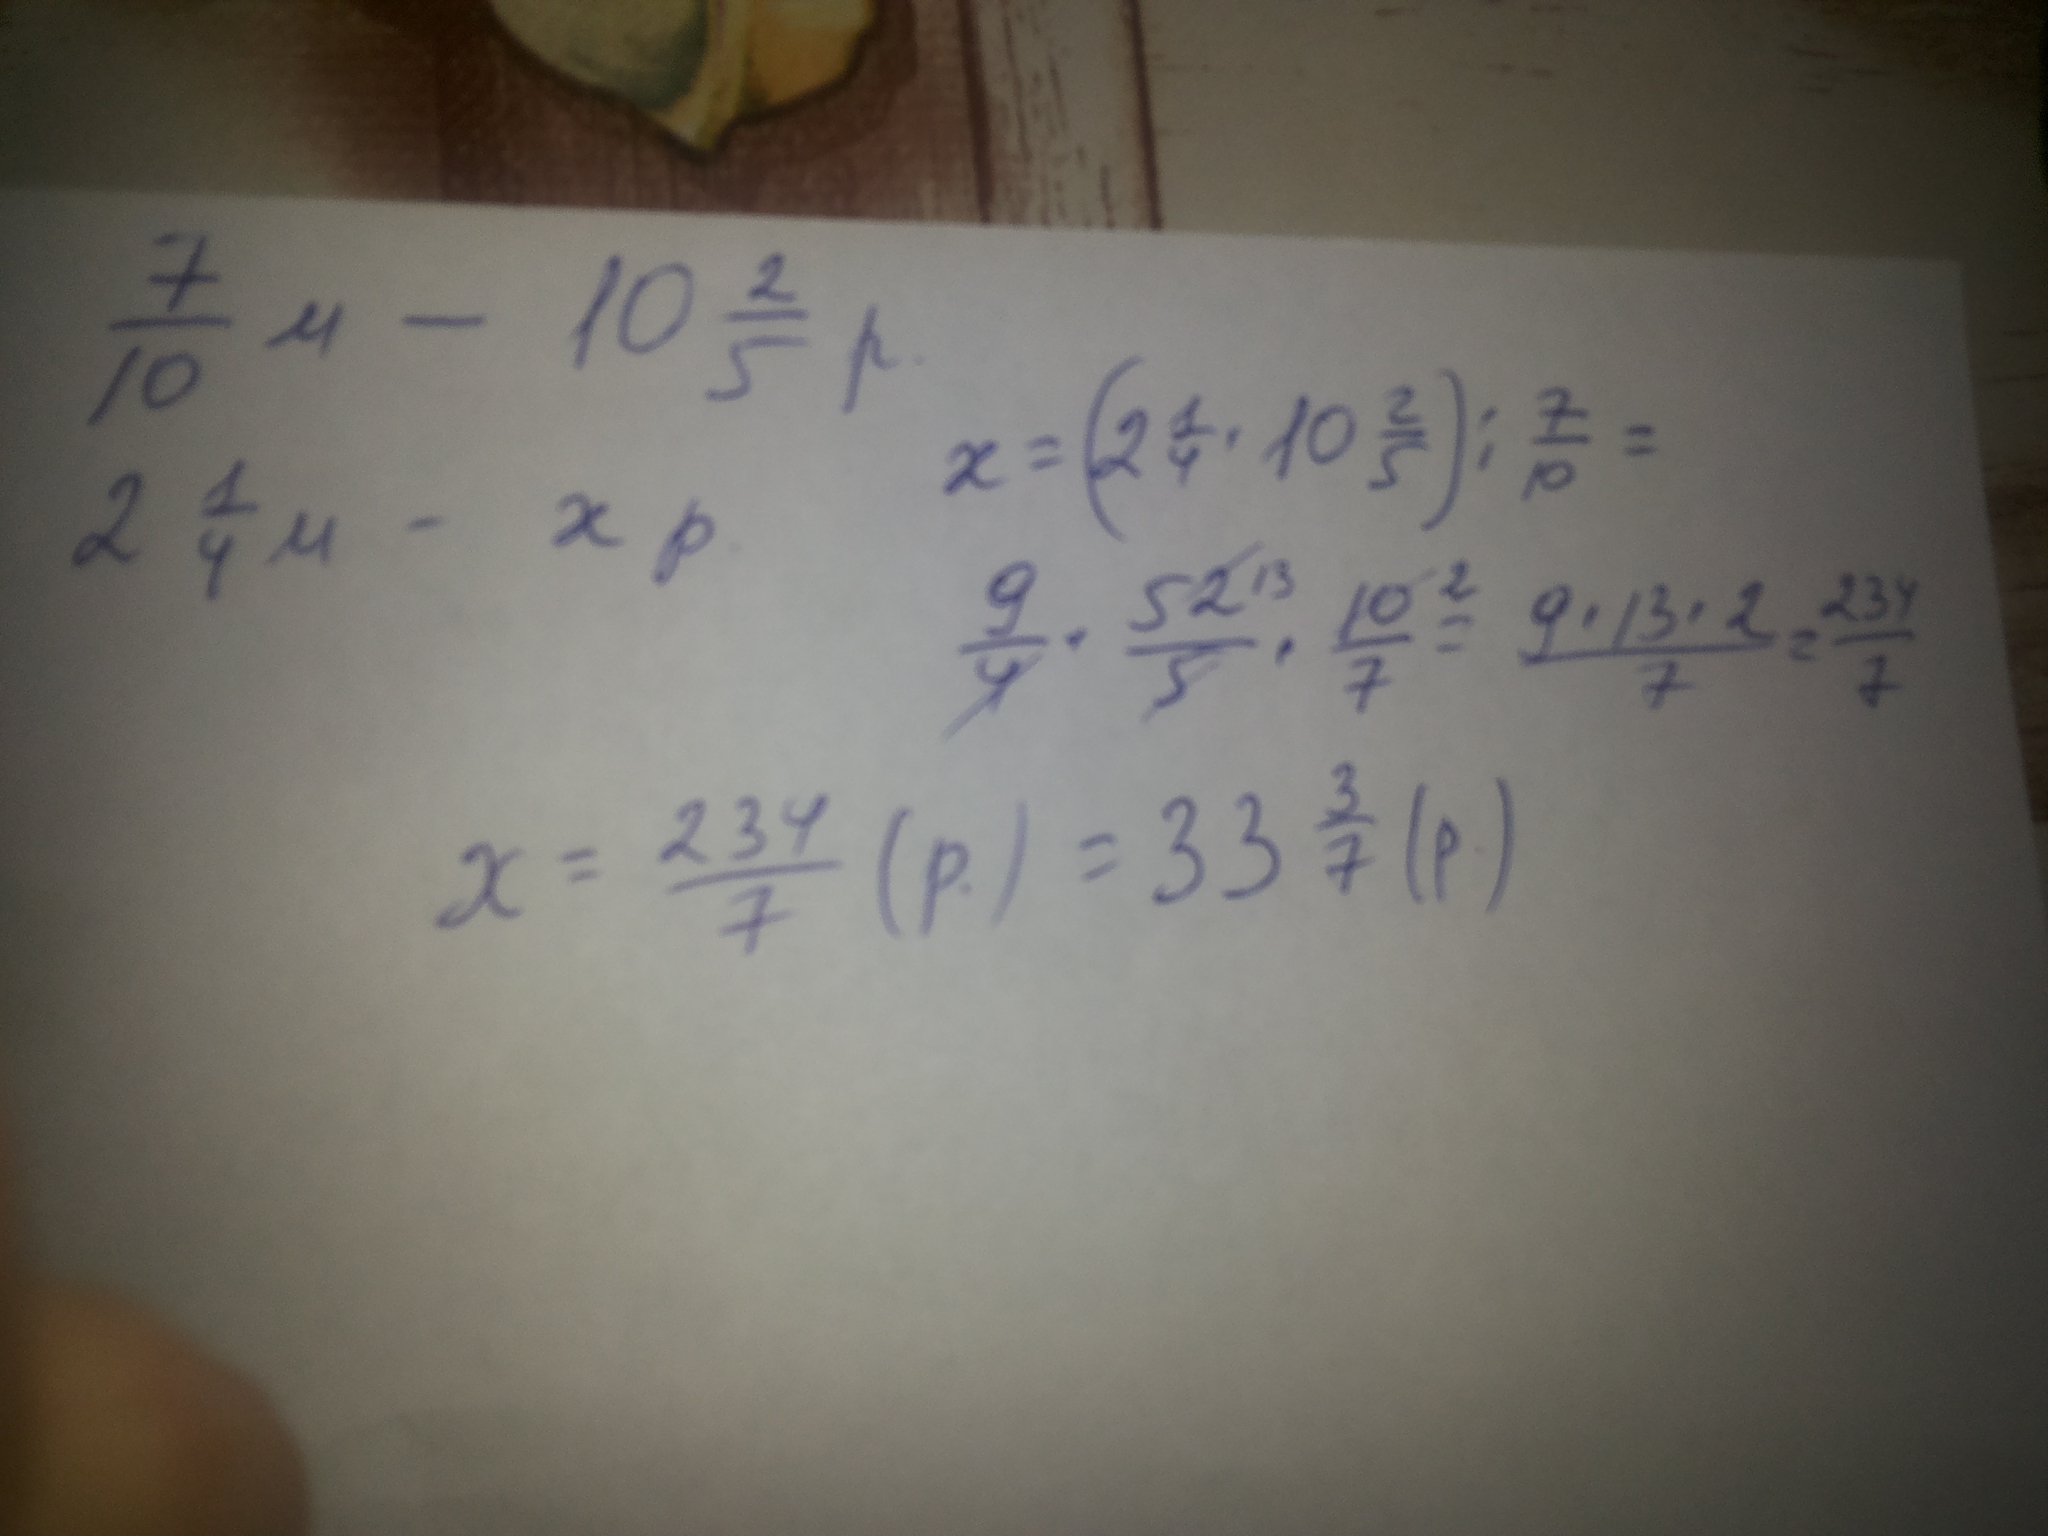 7/10 м — 10 2/5 р.
2 1/4 м - x р.
x = (2 1/4 · 10 2/5) : 7/10 =
9/4 · 52 13/5 · 10 2/7 = 9·13·2/7 = 234/7
x = 234/7 (р.) = 33 3/7 (р.)